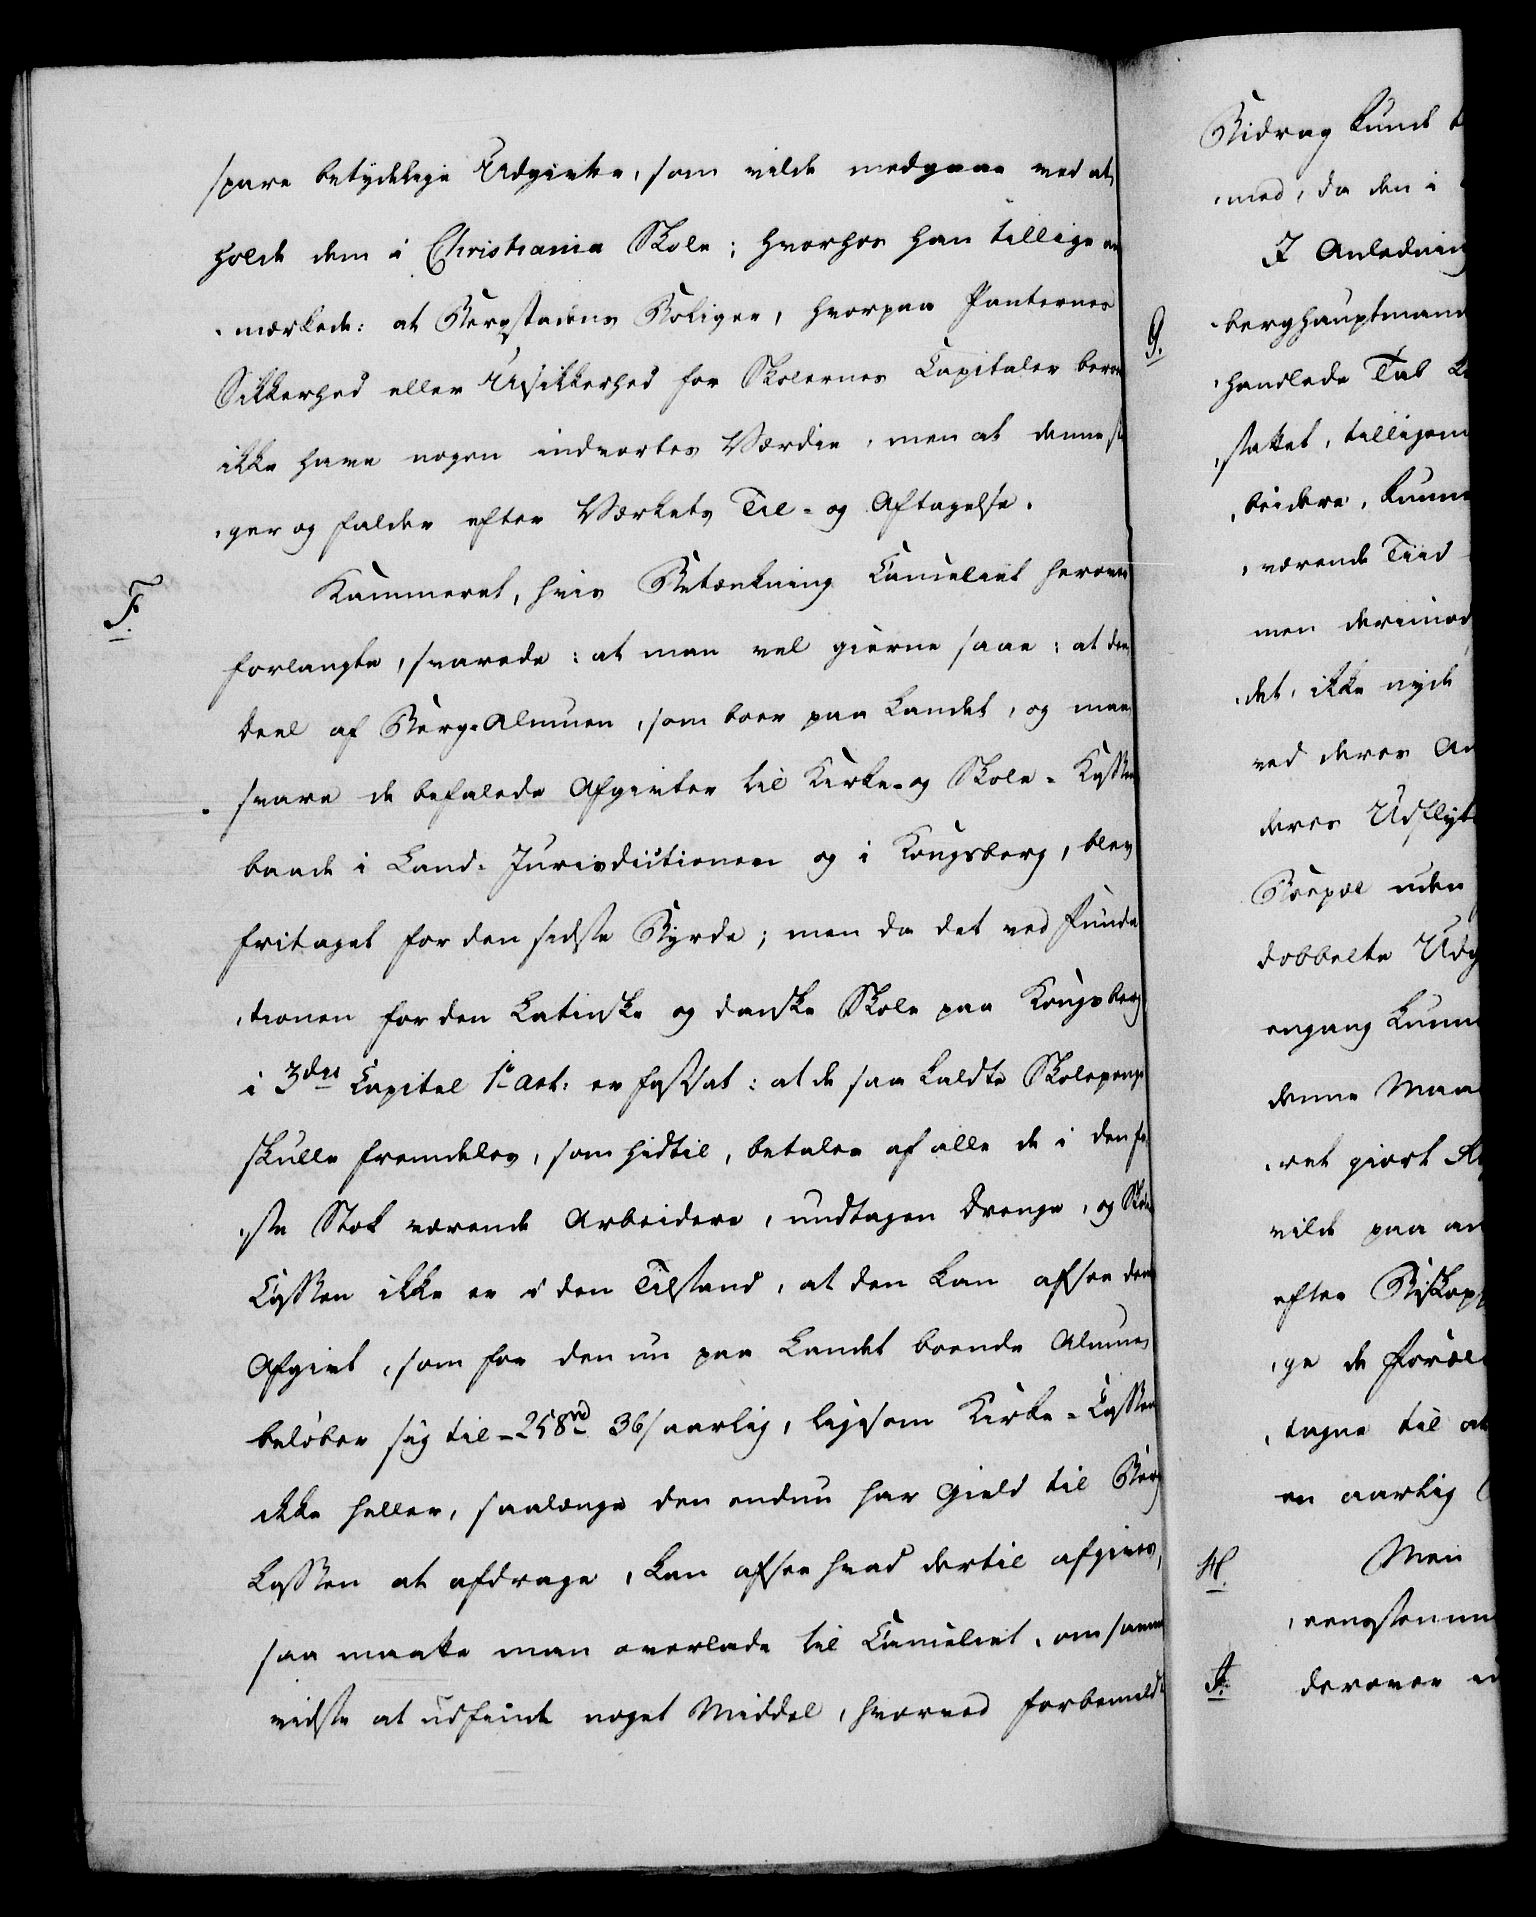 spare betydelige Udgivter, som vilde medgaae ved at
holde dem i Christiania Skole; hvorhos han tillige an
mærkede: at Bergstadens Boliger, hvorpaa Panternes
Sikkerhed eller Usikkerhed for Skolernes Capitaler beroe
ikke have nogen indvortes Værdie, men at denne sti
ger og falder efter Værkets Til- og Aftagelse.
F.
Kammeret, hvis Betænkning Cancelliet herover
forlangte, svarede: at man vel gierne saae: at den
Deel af Berg-Almuen, som boer paa Landet, og maae
svare de befalede Afgivter til Kirke- og Skole-Kassen
baade i Land-Jurisdictionen og i Kongsberg, blev
fritaget for den sidste Byrde; men da det ved Funda
tionen for den Latinske og danske Skole paa Kongsberg
i 3die Capitel 1te Art: er fastsat: at de saa kaldte Skolepenge
skulle fremdeles, som hidtil, betales af alle de i den fa
ste Stok værende Arbeidere, undtagen Drenge, og Skole
Cassen ikke er i den Tilstand, at den kan afsee den
Afgivt, som for den nu paa Landet boende Almue
beløber sig til 258 rd 36 s aarlig, ligesom Kirke-Cassen
ikke heller, saalænge den endnu har Gield til Berg
Cassen at afdrage, kan afsee hvad dertil afgives,
saa maatte man overlade til Cancelliet, om samme
vidste at udfinde noget Middel, hvorved forbemeldte
Bidrag kunde
med, da den i
I Anledning
G.
berghauptmand
handlede Tab
stattet, tilligem
beidere, kunne
værende Tiid
men derimod
det, ikke nyde
ved deres
deres Udflyt
Bopæl uden
dobbelte Udg
engang kunne
denne Maa
ret giort
vilde paa
efter Biskop
ge de Foræl
tagne til at
en aarlig
H.
Men
eensstemm
I.
derover